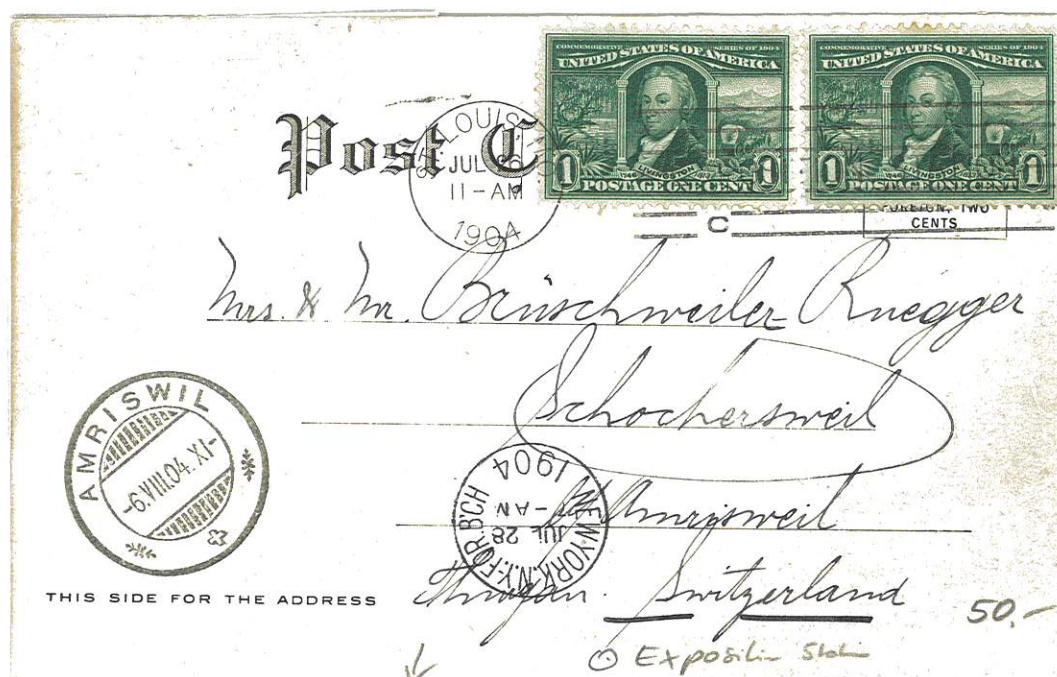 COMMEMORATIVE SERIES OF 1904
UNITED STATES OF AMERICA
LIVINGSTON
1 POSTAGE ONE CENT 1
COMMEMORATIVE SERIES OF 1904
UNITED STATES OF AMERICA
LIVINGSTON
1 POSTAGE ONE CENT 1
Post C
ST. LOUIS
JUL 26
11-AM
1904
FOREIGN, TWO
CENTS
C
Mrs. & Mr. Brüschweiler-Ruegger
Schochersweil
Amrisweil
Thurgau. Switzerland
AMRISWIL
-6.VIII.04.XI-
NEW YORK, N.Y. FOR. B'CH
JUL 28
-AM
1904
THIS SIDE FOR THE ADDRESS
50.-
Exposition Station